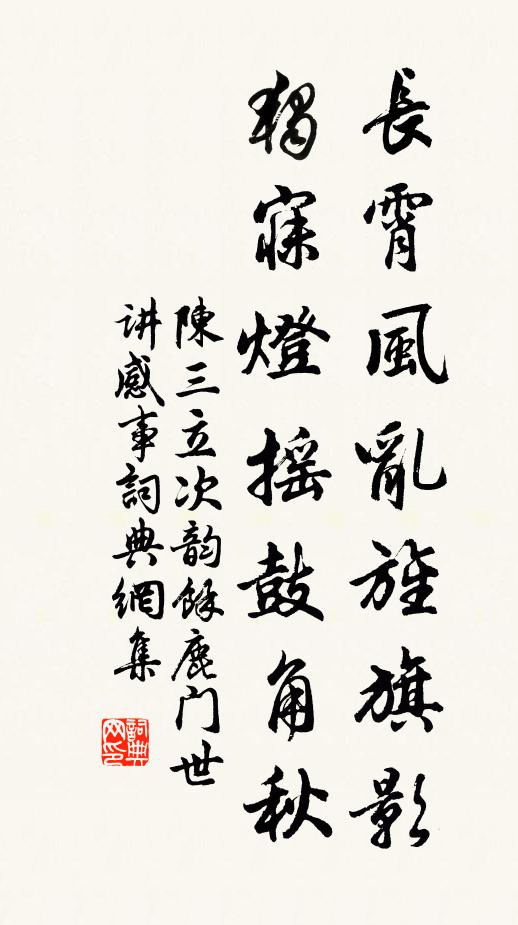 長霄風亂旌旗影
獨寐燈摇鼓角秋
陳三立次韵餘鹿门世
讲感事詞典網集
詞典网印